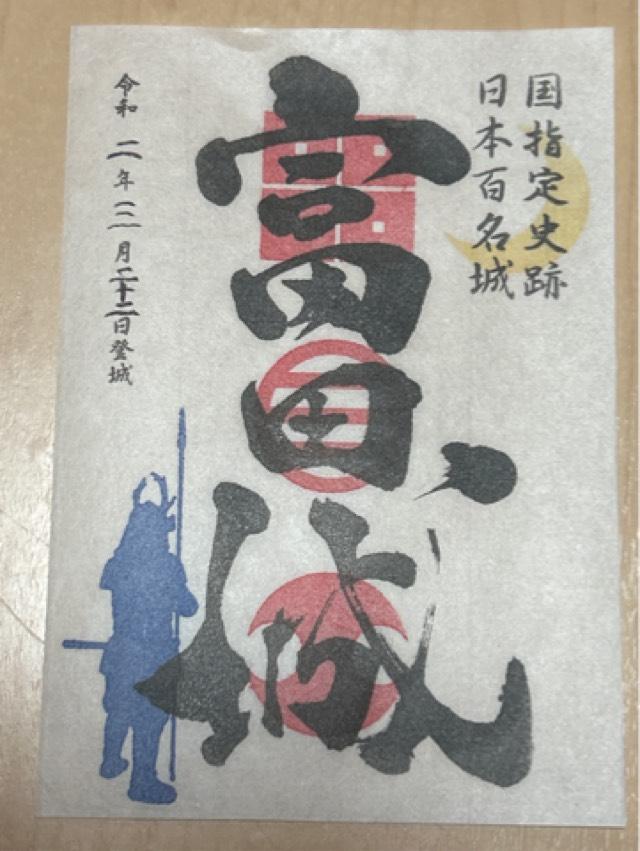 国指定史跡
日本百名城
富田城
令和二年三月二十二日登城